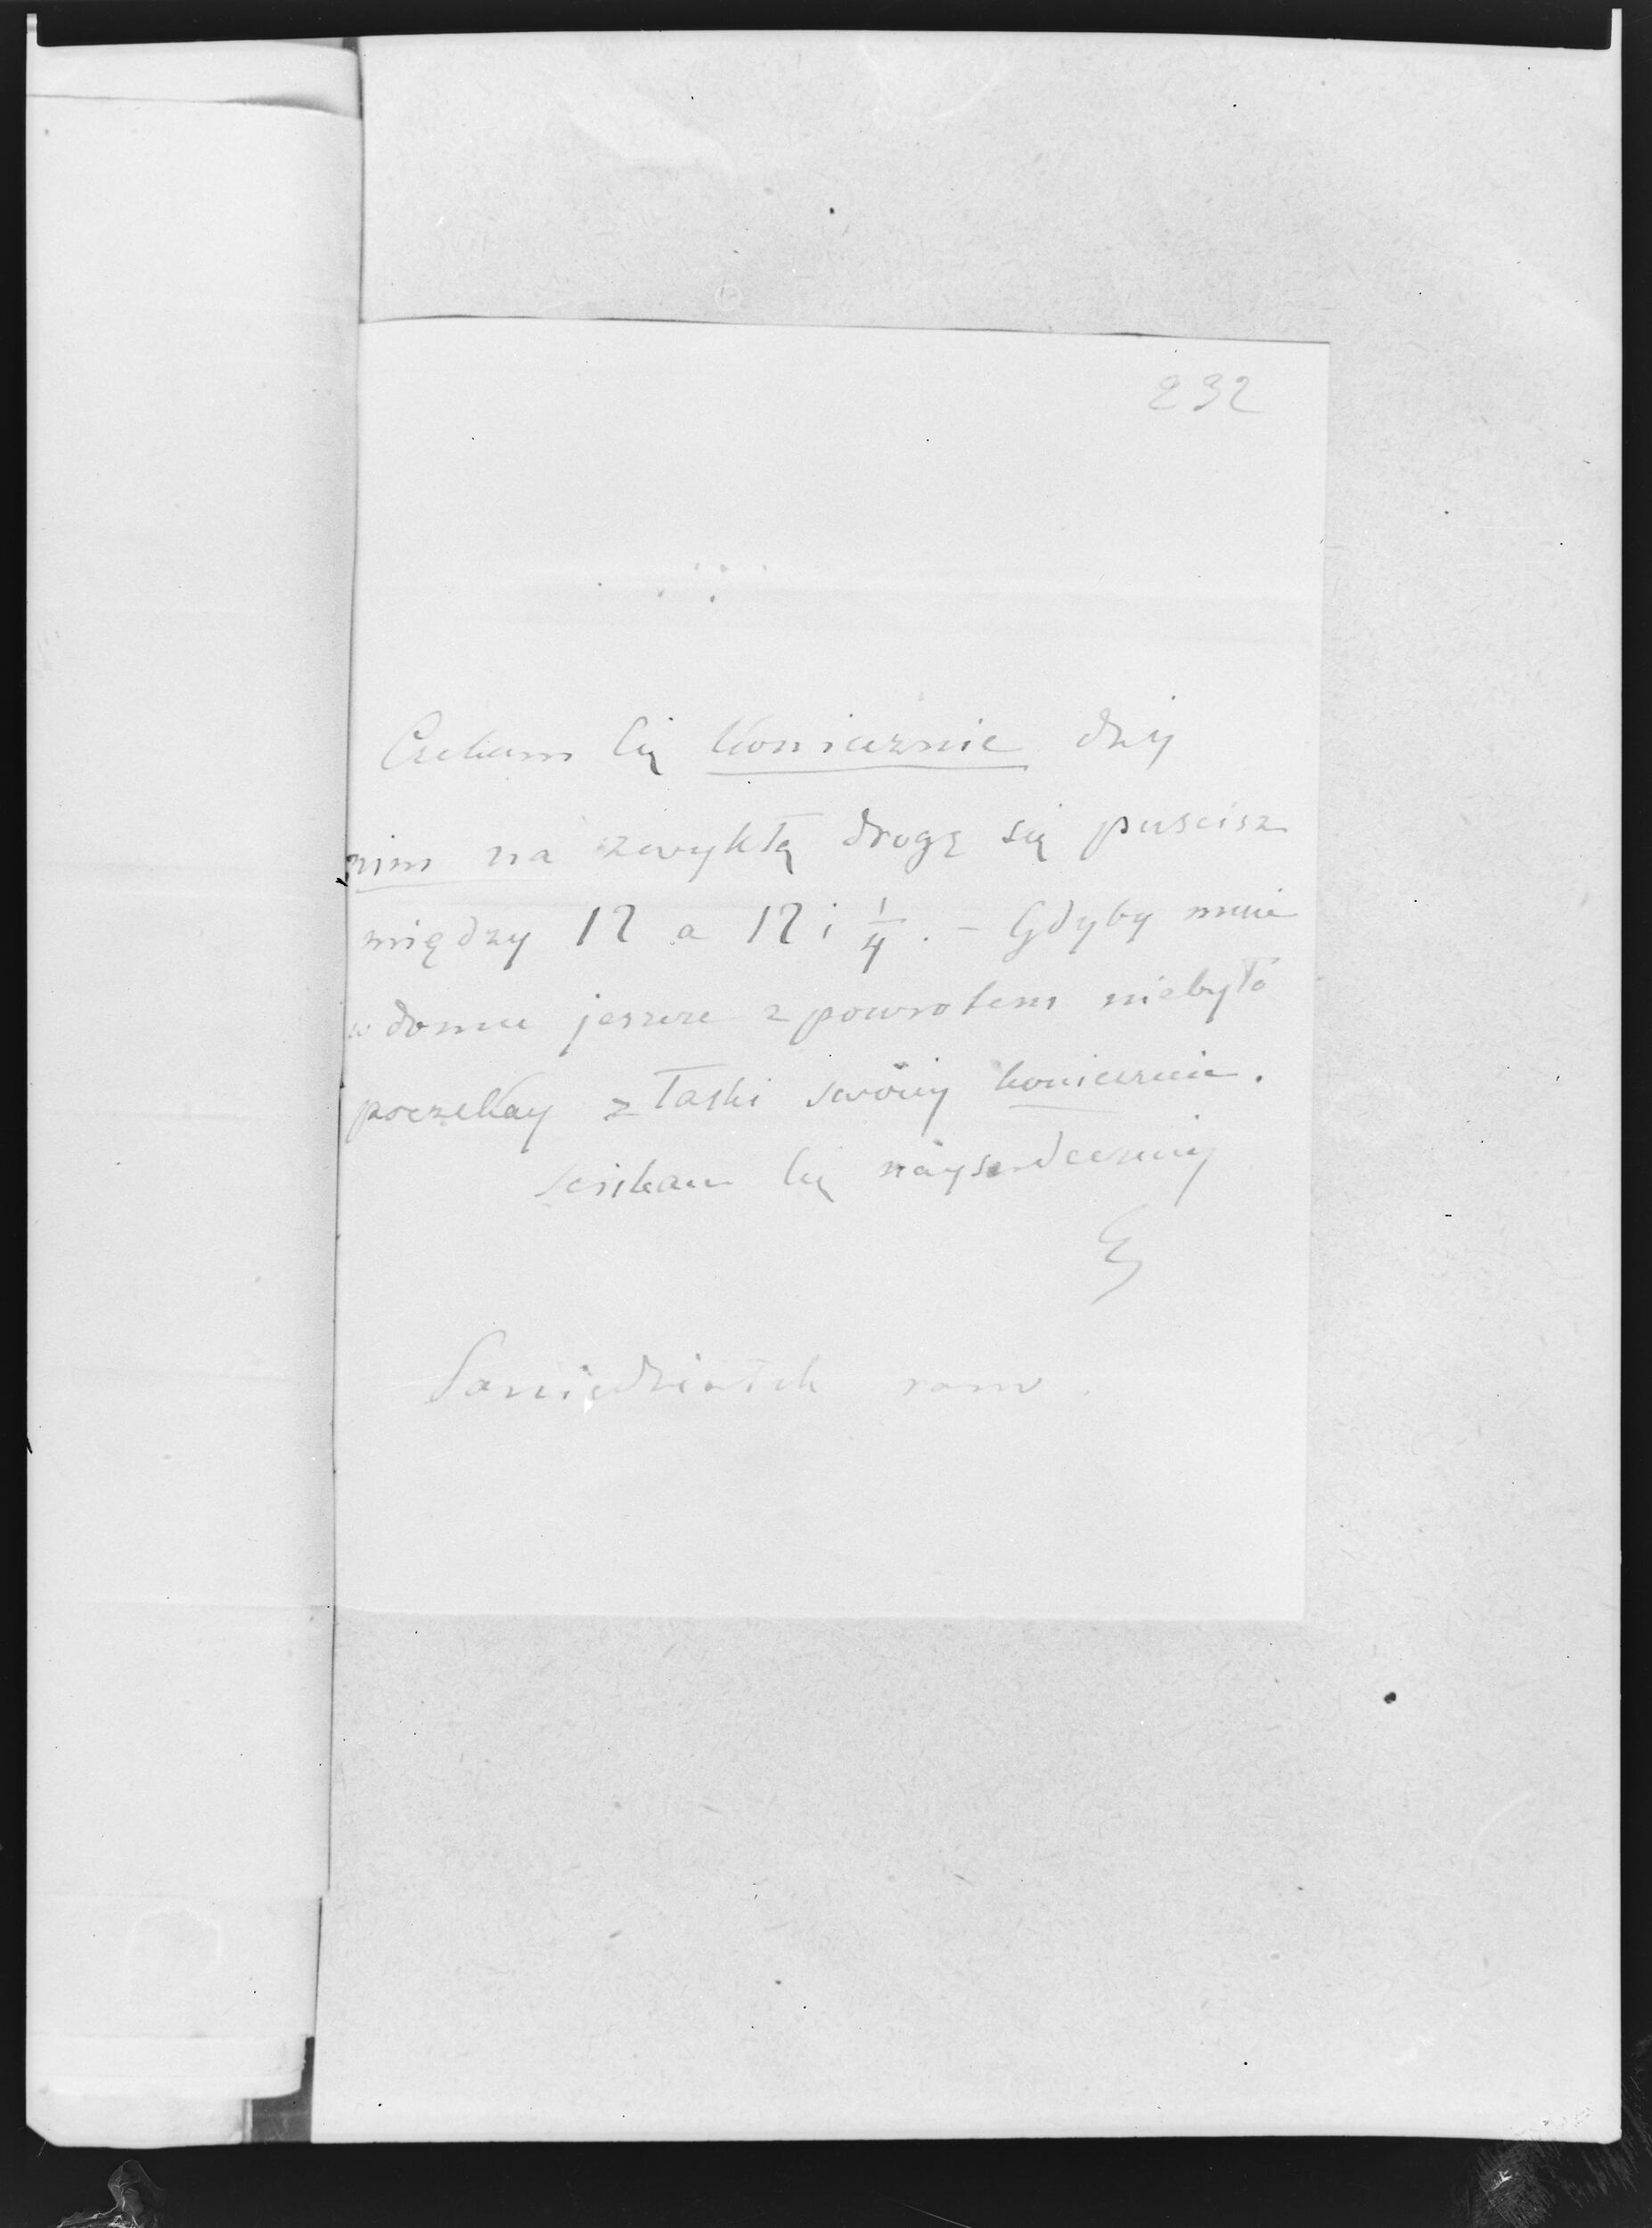 232
Czekam Cię koniecznie dziś
nim na zwykłą drogę się puscisz
między 12 a 12 i 1/4. - Gdyby mnie
w domu jeszcze z powrotem niebyło
poczekay z łaski swoiey koniecznie.
sciskam Cię nayserdeczniey
E
Poniedziałek rano.